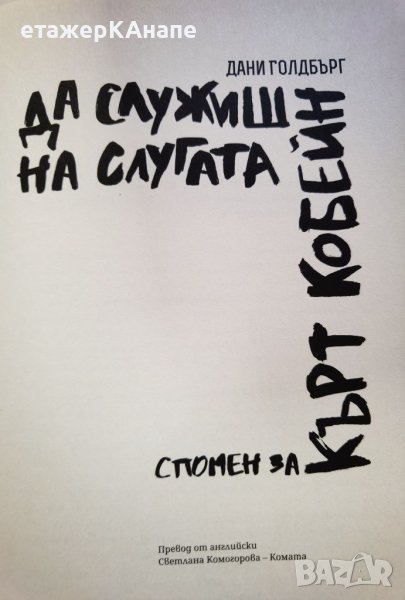 етажерКАнапе
ДАНИ ГОЛДБЪРГ
ДА СЛУЖИШ
НА СЛУГАТА
КЪРТ КОБЕЙН
СПОМЕН ЗА
Превод от английски
Светлана Комогорова – Комата
BAZAR